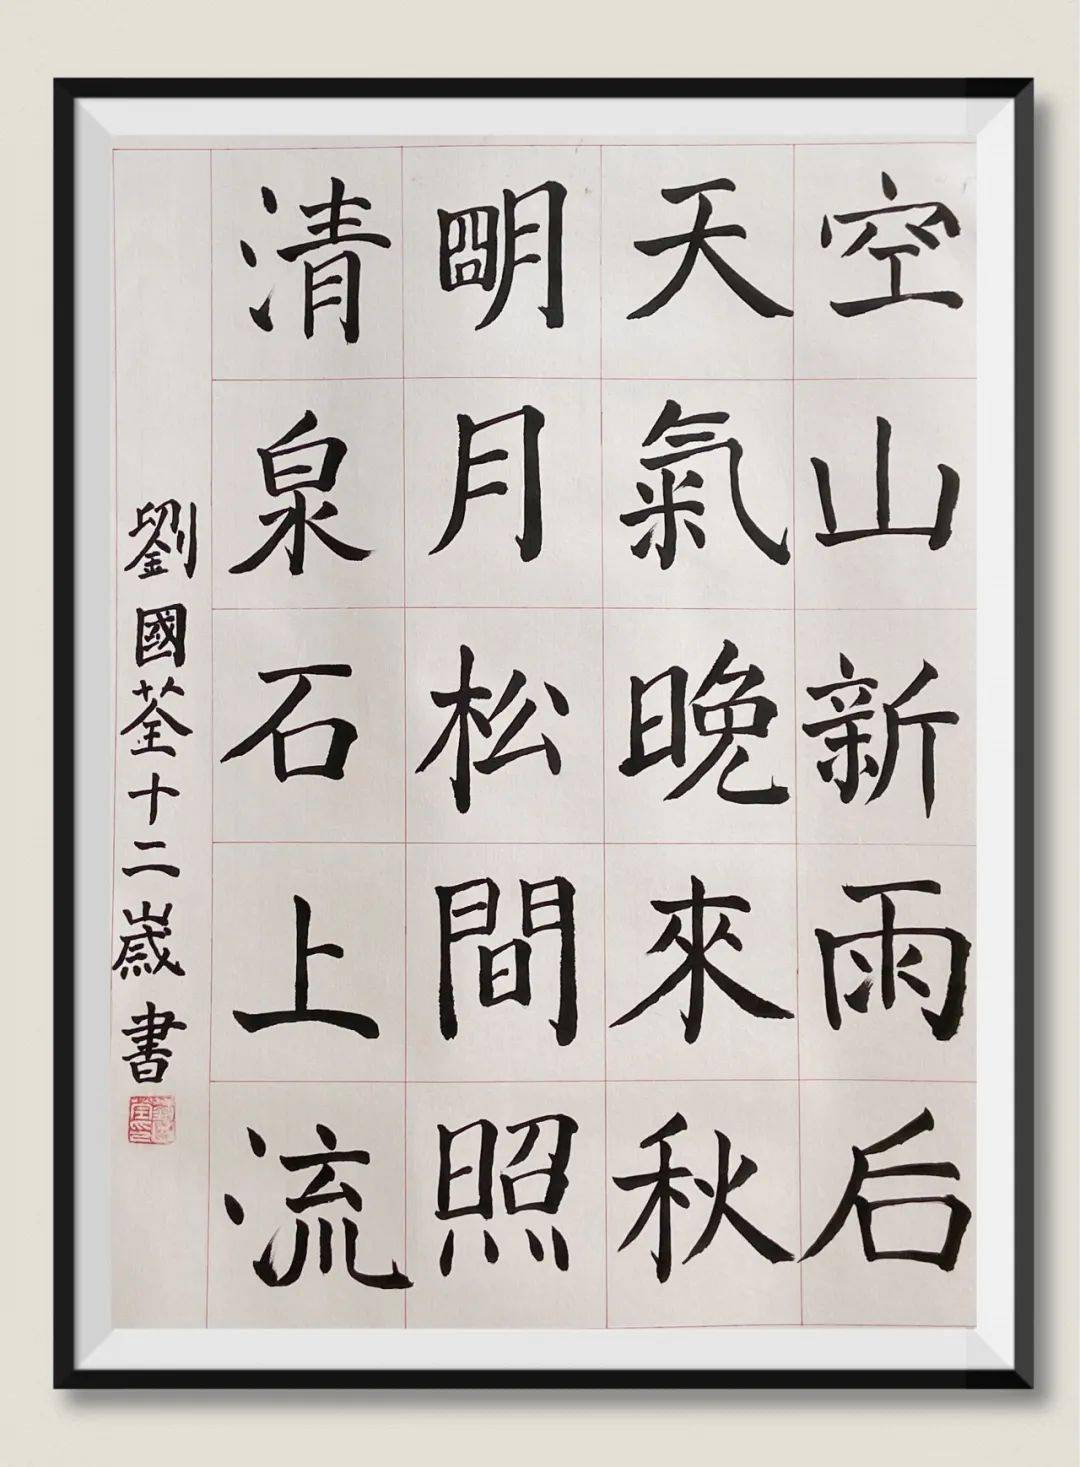 空山新雨后
天氣晚來秋
明月松間照
清泉石上流
劉國荃十二歲書